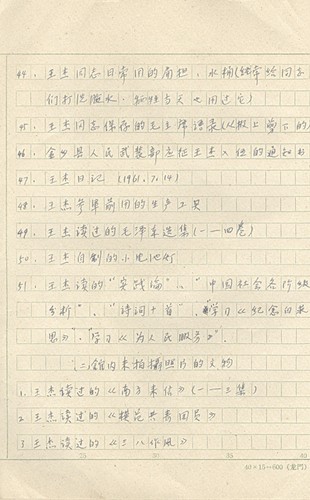 44. 王杰同志日常用的扁担、水桶(经常给同志
们打洗脸水、
45. 王杰同志保存的毛主席语录(从报上剪下的)
46. 金乡县人民武装部批准王杰入伍的通知书
47. 王杰日记 (1961.7.14)
48. 王杰参军前用的生产工具
49. 王杰读过的毛泽东选集(一——四卷)
50. 王杰自制的小电池灯
51. 王杰读的"实践论"、"中国社会各阶级
分析"、"诗词十首"、学习《纪念白求
恩》、"学习《为人民服务》".
二、馆内未拍摄照片的文物
1. 王杰读过的《南方来信》(一——三集)
2. 王杰读过的《模范共青团员》
3 王杰读过的《三八作风》
25 30 35 40
40×15=600